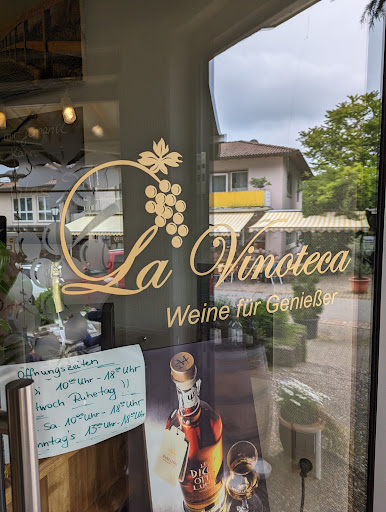 La Vinoteca
Weine für Genießer
Öffnungszeiten
10⁰⁰ Uhr - 18⁰⁰ Uhr
Ruhetag
Sa. 10⁰⁰ Uhr - 18⁰⁰ Uhr
13⁰⁰ Uhr - 18⁰⁰ Uhr